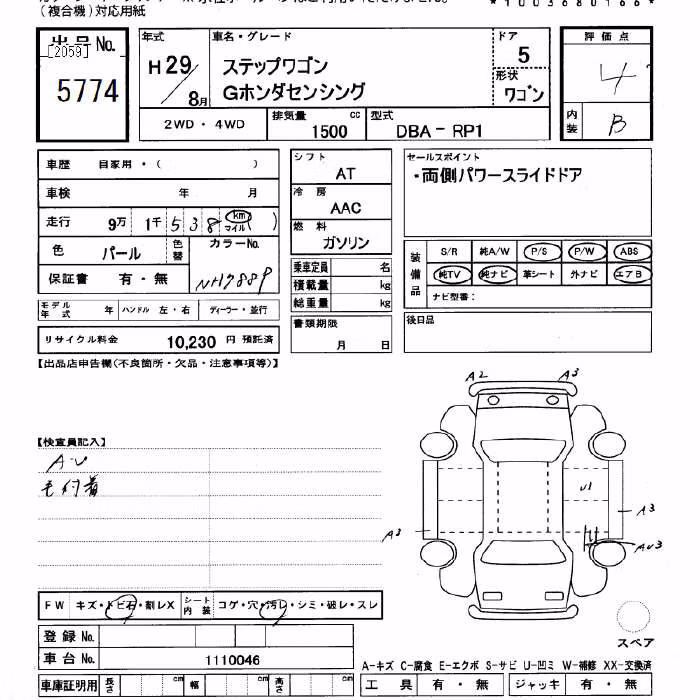 (複合機)対応用紙
*1003680166*
出品 No.
[2059]
5774
年式
H29/8月
車名・グレード
ステップワゴン
Gホンダセンシング
ドア
5
形状
ワゴン
評価点
4
内装
B
2WD・4WD
排気量
1500 cc
型式
DBA-RP1
車歴 自家用・( )
車検 年 月
走行 9万 1千 538 km マイル ( )
色 パール
色替
カラーNo.
NH788P
保証書 有・無
モデル年式 年
ハンドル 左・右
ディーラー・並行
リサイクル料金 10,230 円 預託済
シフト
AT
冷房
AAC
燃料
ガソリン
乗車定員 名
積載量 kg
総重量 kg
書類期限
月 日
セールスポイント
・両側パワースライドドア
装備品
S/R 純A/W P/S P/W ABS
純TV 純ナビ 革シート 外ナビ エアB
ナビ型番:
後日品
【出品店申告欄(不良箇所・欠品・注意事項等)】
【検査員記入】
A・U
毛付着
A2
A3
U1
A3
A3
AU3
スペア
FW キズ・トビ石・割レX
シート内装 コゲ・穴・汚レ・シミ・破レ・スレ
登録 No.
車台 No.
1110046
車庫証明用 長さ cm 幅 cm 高さ cm
A-キズ C-腐食 E-エクボ S-サビ U-凹ミ W-補修 XX-交換済
工具 有・無
ジャッキ 有・無